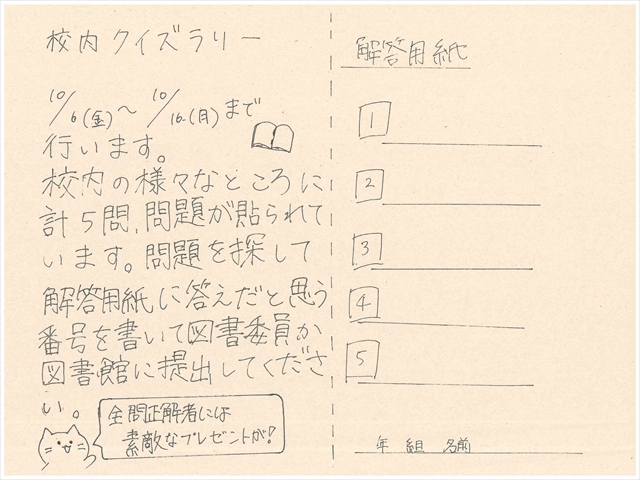 校内クイズラリー
10/6(金)～10/16(月)まで
行います。
校内の様々なところに
計5問、問題が貼られて
います。問題を探して
解答用紙に答えだと思う
番号を書いて図書委員か
図書館に提出してくださ
い。
全問正解者には
素敵なプレゼントが!
解答用紙
1
2
3
4
5
年 組 名前